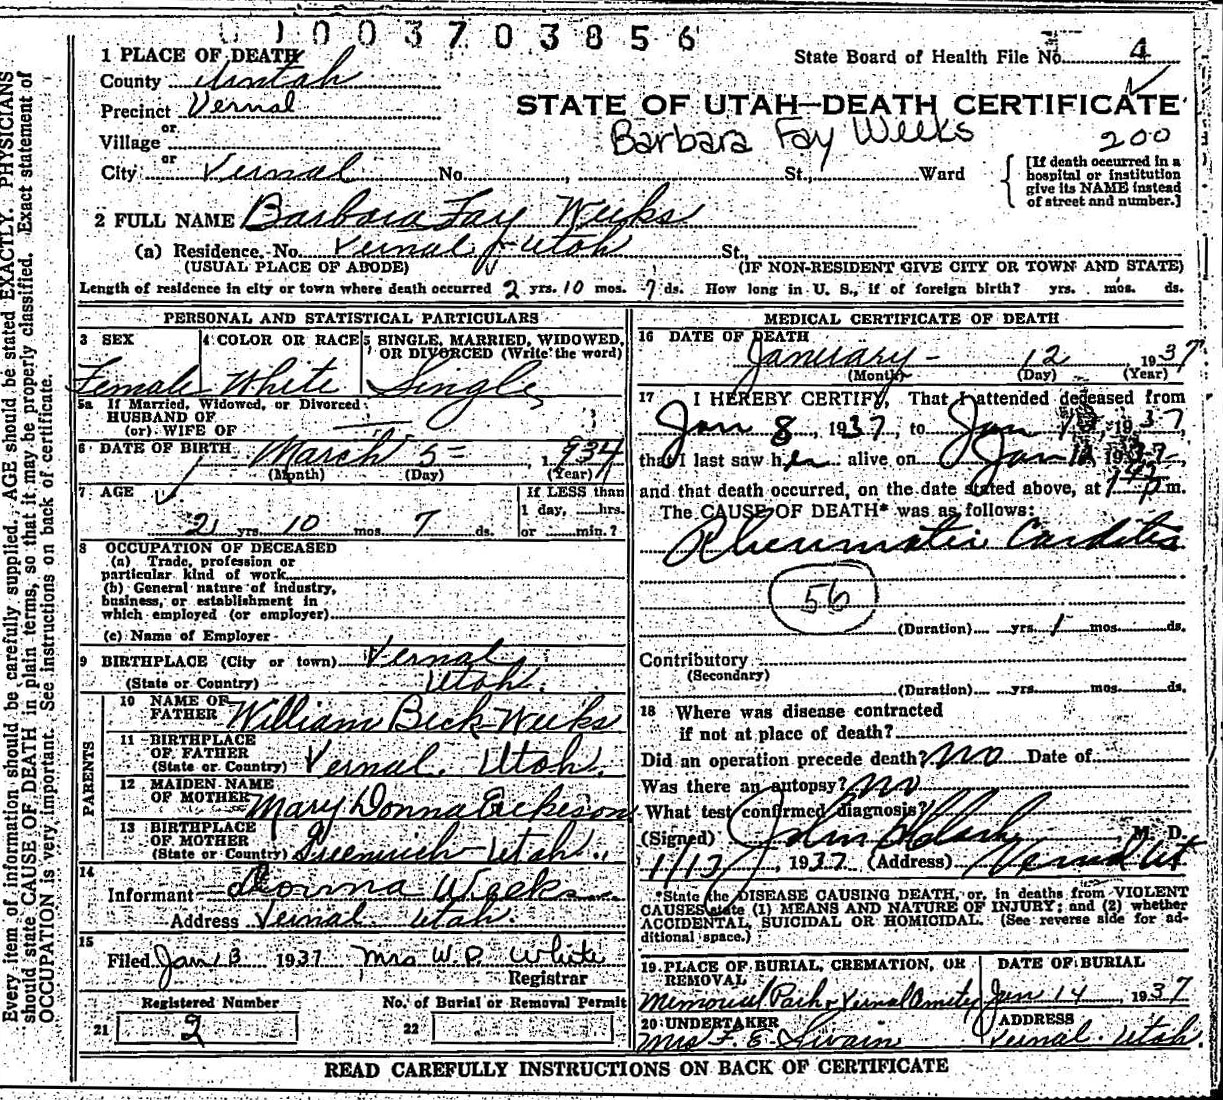 0 1 0 0 3 7 0 3 8 5 6
1 PLACE OF DEATH
State Board of Health File No. 4
County Uintah
Precinct Vernal
STATE OF UTAH—DEATH CERTIFICATE
or
Village
Barbara Fay Weeks 200
or
City Vernal No. , St., Ward
[If death occurred in a
hospital or institution
give its NAME instead
of street and number.]
2 FULL NAME Barbara Fay Weeks
(a) Residence. No. Vernal Utah St.,
(USUAL PLACE OF ABODE) (IF NON-RESIDENT GIVE CITY OR TOWN AND STATE)
Length of residence in city or town where death occurred 2 yrs. 10 mos. 7 ds. How long in U. S., if of foreign birth? yrs. mos. ds.
PERSONAL AND STATISTICAL PARTICULARS
3 SEX
Female
4 COLOR OR RACE
White
5 SINGLE, MARRIED, WIDOWED,
OR DIVORCED (Write the word)
Single
5a If Married, Widowed, or Divorced
HUSBAND OF
(or) WIFE OF
6 DATE OF BIRTH March 5 , 1934
(Month) (Day) (Year)
7 AGE
2 yrs. 10 mos. 7 ds.
If LESS than
1 day, hrs.
or min.?
8 OCCUPATION OF DECEASED
(a) Trade, profession or
particular kind of work
(b) General nature of industry,
business, or establishment in
which employed (or employer)
(c) Name of Employer
9 BIRTHPLACE (City or town) Vernal
(State or Country) Utah.
PARENTS
10 NAME OF
FATHER William Beck Weeks
11 BIRTHPLACE
OF FATHER
(State or Country) Vernal. Utah.
12 MAIDEN NAME
OF MOTHER Mary Donna
13 BIRTHPLACE
OF MOTHER
(State or Country) Greenwich-Utah.
14
Informant Donna Weeks
Address Vernal Utah.
15
Filed Jan 13 1937 Mrs W. P. White
Registrar
Registered Number
21 2
No. of Burial or Removal Permit
22
MEDICAL CERTIFICATE OF DEATH
16 DATE OF DEATH
January - 12 1937
(Month) (Day) (Year)
17 I HEREBY CERTIFY, That I attended deceased from
Jan 8, 1937, to Jan 12, 1937,
that I last saw her alive on Jan 12 1937,
and that death occurred, on the date stated above, at p.m.
The CAUSE OF DEATH* was as follows:
Rheumatic Carditis
56
(Duration) yrs. 1 mos. ds.
Contributory
(Secondary)
(Duration) yrs. mos. ds.
18 Where was disease contracted
if not at place of death?
Did an operation precede death? no Date of
Was there an autopsy? no
What test confirmed diagnosis?
(Signed) John B Clark M. D.
1/13/, 1937 (Address) Vernal Ut
*State the DISEASE CAUSING DEATH, or, in deaths from VIOLENT
CAUSES state (1) MEANS AND NATURE OF INJURY; and (2) whether
ACCIDENTAL, SUICIDAL OR HOMICIDAL. (See reverse side for ad-
ditional space.)
19 PLACE OF BURIAL, CREMATION, OR
REMOVAL
Memorial Park, Vernal
DATE OF BURIAL
Jan 14, 1937
20 UNDERTAKER
Mrs F. E. Swain
ADDRESS
Vernal. Utah
READ CAREFULLY INSTRUCTIONS ON BACK OF CERTIFICATE
Every item of information should be carefully supplied. AGE should be stated EXACTLY. PHYSICIANS
should state CAUSE OF DEATH in plain terms, so that it may be properly classified. Exact statement of
OCCUPATION is very important. See instructions on back of certificate.